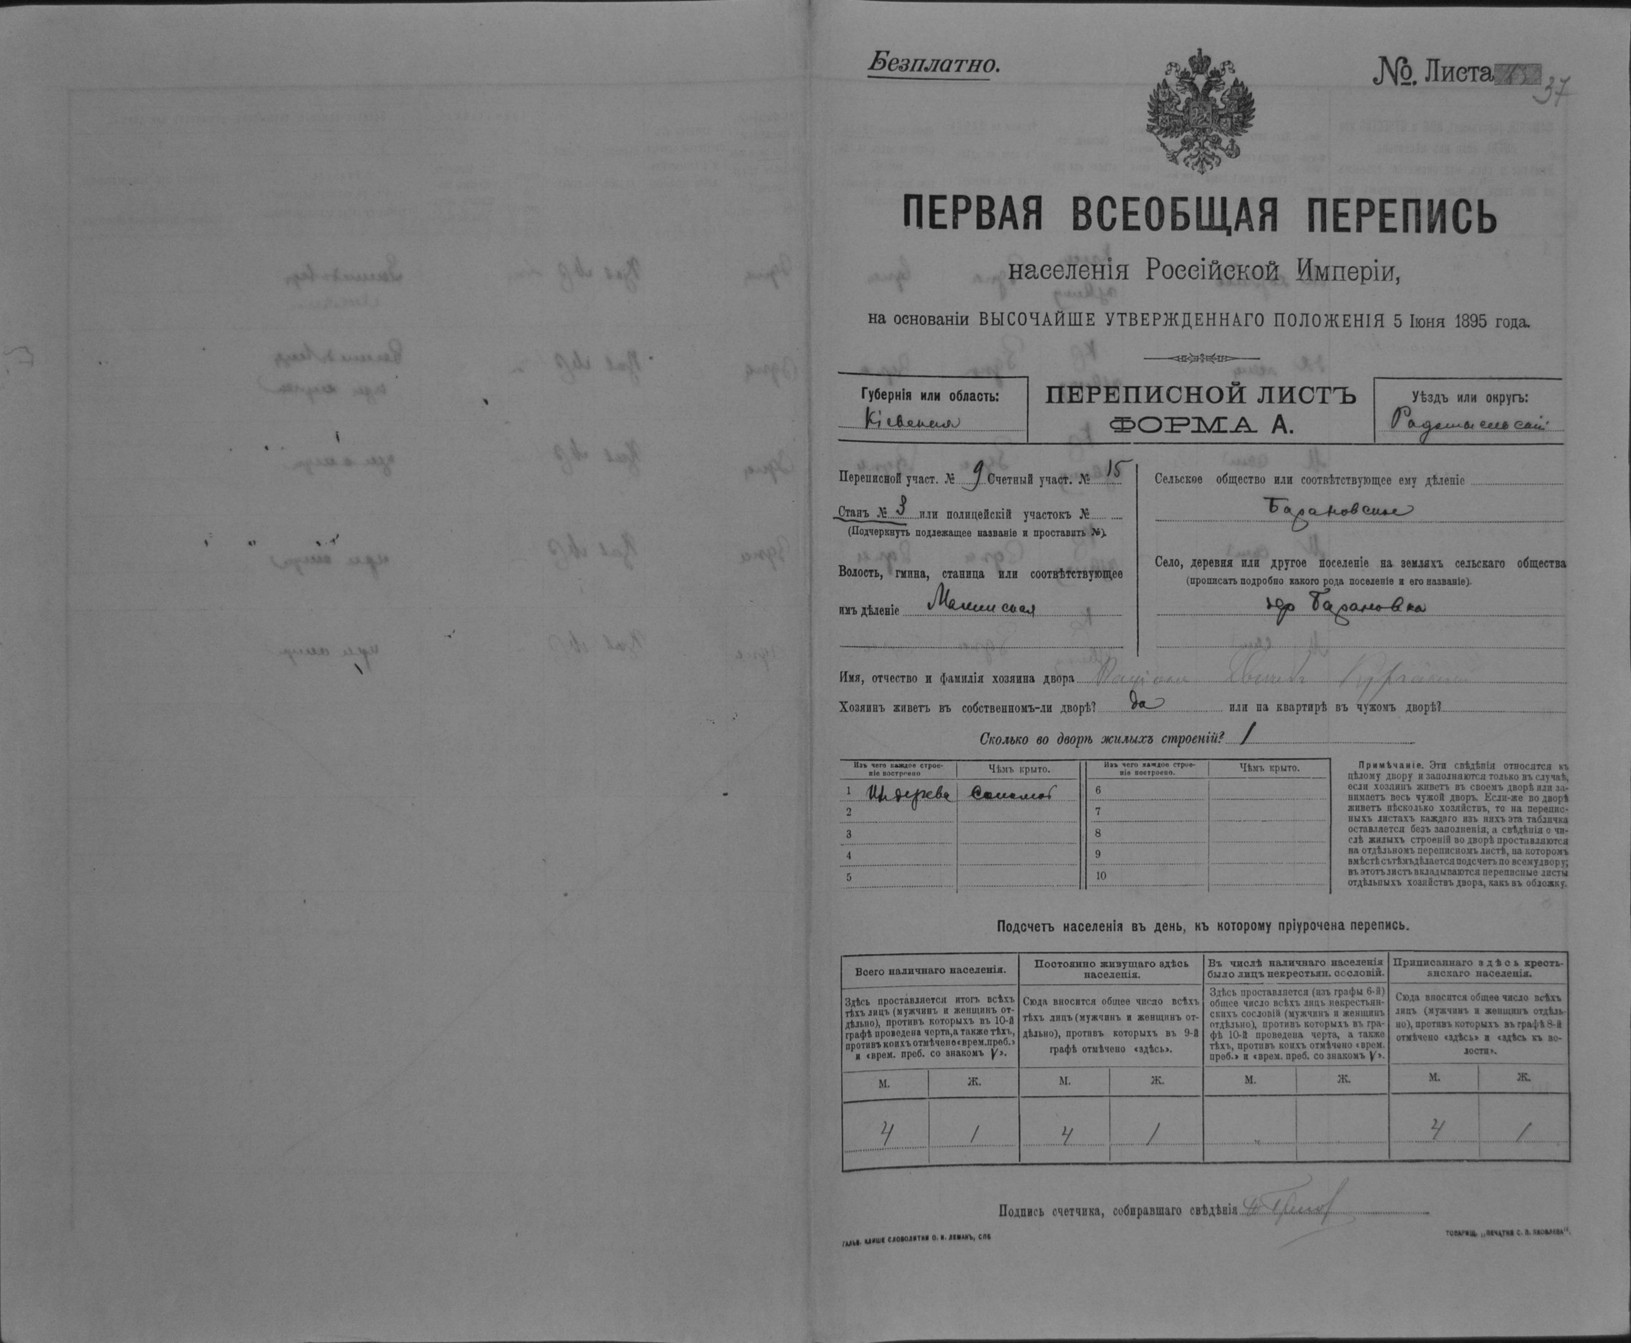 Безплатно.
№. Листа 37
ПЕРВАЯ ВСЕОБЩАЯ ПЕРЕПИСЬ
населенія Россійской Имперіи,
на основаніи ВЫСОЧАЙШЕ УТВЕРЖДЕННАГО ПОЛОЖЕНІЯ 5 Іюня 1895 года.
Губернія или область:
Кіевская
ПЕРЕПИСНОЙ ЛИСТЪ
ФОРМА А.
Уѣздъ или округъ:
Радомысльскій
Переписной участ. № 9 Счетный участ. № 15
Станъ № 3 или полицейскій участокъ №
(Подчеркнуть подлежащее названіе и проставить №).
Волость, гмина, станица или соотвѣтствующее
имъ дѣленіе Малинская
Сельское общество или соотвѣтствующее ему дѣленіе
Барановское
Село, деревня или другое поселеніе на земляхъ сельскаго общества
(прописать подробно какого рода поселеніе и его названіе).
дер Барановка
Имя, отчество и фамилія хозяина двора
Хозяинъ живетъ въ собственномъ-ли дворѣ? да или на квартирѣ въ чужомъ дворѣ?
Сколько во дворѣ жилыхъ строеній? 1
Изъ чего каждое строе-
ніе построено
Чѣмъ крыто.
Изъ чего каждое строе-
ніе построено.
Чѣмъ крыто.
1 Из дерева Соломой 6
2 7
3 8
4 9
5 10
Примѣчаніе. Эти свѣдѣнія относятся къ
цѣлому двору и заполняются только въ случаѣ,
если хозяинъ живетъ въ своемъ дворѣ или за-
нимаетъ весь чужой дворъ. Если-же во дворѣ
живетъ нѣсколько хозяйствъ, то на перепис-
ныхъ листахъ каждаго изъ нихъ эта табличка
оставляется безъ заполненія, а свѣдѣнія о чи-
слѣ жилыхъ строеній во дворѣ проставляются
на отдѣльномъ переписномъ листѣ, на которомъ
вмѣстѣ съ тѣмъ дѣлается подсчетъ по всему двору;
въ этотъ листъ вкладываются переписные листы
отдѣльныхъ хозяйствъ двора, какъ въ обложку.
Подсчетъ населенія въ день, къ которому пріурочена перепись.
Всего наличнаго населенія.
Здѣсь проставляется итогъ всѣхъ
тѣхъ лицъ (мужчинъ и женщинъ от-
дѣльно), противъ которыхъ въ 10-й
графѣ проведена черта, а также тѣхъ,
противъ коихъ отмѣчено «врем. преб.»
и «врем. преб. со знакомъ V».
Постоянно живущаго здѣсь
населенія.
Сюда вносится общее число всѣхъ
тѣхъ лицъ (мужчинъ и женщинъ от-
дѣльно), противъ которыхъ въ 9-й
графѣ отмѣчено «здѣсь».
Въ числѣ наличнаго населенія
было лицъ некрестьян. сословій.
Здѣсь проставляется (изъ графы 6-й)
общее число всѣхъ лицъ некрестьян-
скихъ сословій (мужчинъ и женщинъ
отдѣльно), противъ которыхъ въ гра-
фѣ 10-й проведена черта, а также
тѣхъ, противъ коихъ отмѣчено «врем.
преб.» и «врем. преб. со знакомъ V».
Приписаннаго здѣсь кресть-
янскаго населенія.
Сюда вносится общее число всѣхъ
лицъ (мужчинъ и женщинъ отдѣль-
но), противъ которыхъ въ графѣ 8-й
отмѣчено «здѣсь» и «здѣсь къ во-
лости».
М. Ж. М. Ж. М. Ж. М. Ж.
4 1 4 1 „ 4 1
Подпись счетчика, собиравшаго свѣдѣнія
ГАЛЬВ. КЛИШЕ СЛОВОЛИТНИ О. И. ЛЕМАНЪ, СПБ
ТОВАРИЩ. „ПЕЧАТНЯ С. П. ЯКОВЛЕВА".